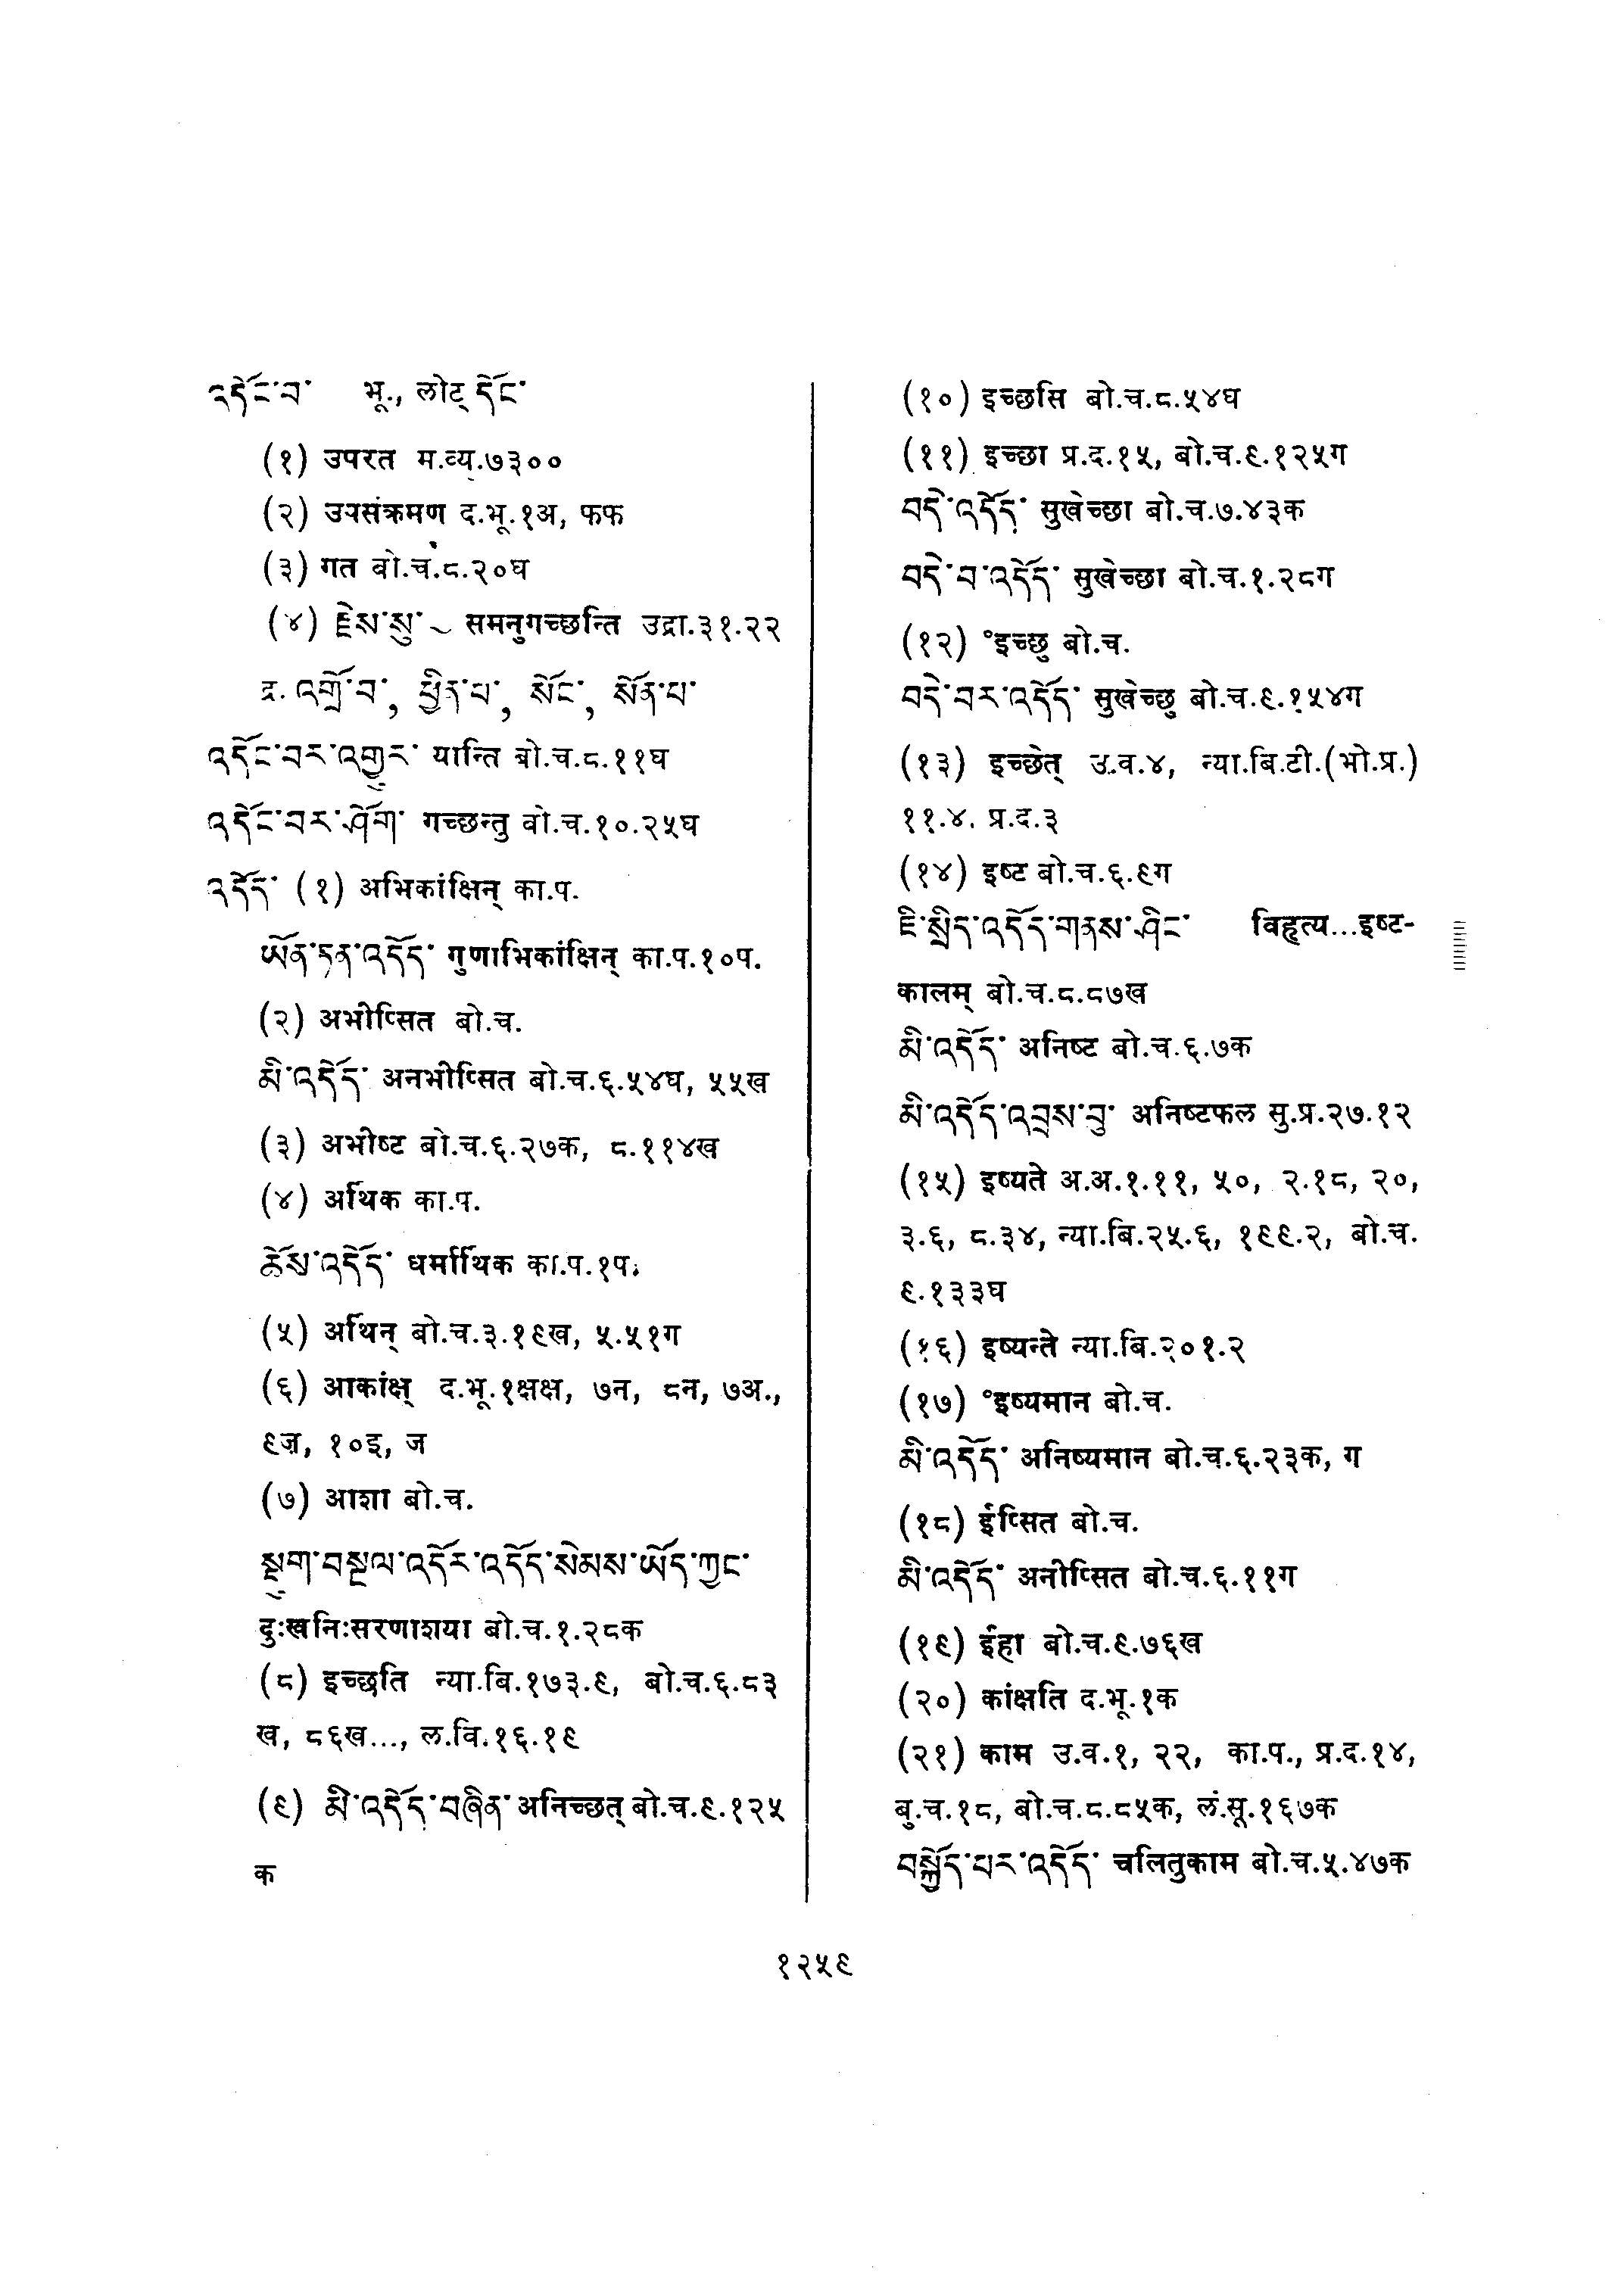 འདོང་བ་ भू., लोट् དོང་
(१) उपरत म.व्यु.७३००
(२) उपसंक्रमण द.भू.१अ, फफ
(३) गत बो.च.८.२०घ
(४) རྗེས་སུ་ ~ समनुगच्छन्ति उद्रा.३१.२२
द्र. འགྲོ་བ་, ཕྱིན་པ་, སོང་, སོན་པ་
འདོང་བར་འགྱུར་ यान्ति बो.च.८.११घ
འདོང་བར་ཤོག་ गच्छन्तु बो.च.१०.२५घ
འདོད་ (१) अभिकांक्षिन् का.प.
ཡོན་ཏན་འདོད་ गुणाभिकांक्षिन् का.प.१०प.
(२) अभीप्सित बो.च.
མི་འདོད་ अनभीप्सित बो.च.६.५४घ, ५५ख
(३) अभीष्ट बो.च.६.२७क, ८.११४ख
(४) अर्थिक का.प.
ཆོས་འདོད་ धर्मार्थिक का.प.१प.
(५) अर्थिन् बो.च.३.१९ख, ५.५१ग
(६) आकांक्ष् द.भू.१क्षक्ष, ७न, ८न, ७अ.,
९ज, १०इ, ज
(७) आशा बो.च.
སྡུག་བསྔལ་འདོར་འདོད་སེམས་ཡོད་ཀྱང་
दुःखनिःसरणाशया बो.च.१.२८क
(८) इच्छति न्या.बि.१७३.९, बो.च.६.८३
ख, ८६ख..., ल.वि.१६.१९
(९) མི་འདོད་བཞིན་ अनिच्छत् बो.च.९.१२५
क
(१०) इच्छसि बो.च.८.५४घ
(११) इच्छा प्र.द.१५, बो.च.९.१२५ग
བདེ་འདོད་ सुखेच्छा बो.च.७.४३क
བདེ་བ་འདོད་ सुखेच्छा बो.च.१.२८ग
(१२) °इच्छु बो.च.
བདེ་བར་འདོད་ सुखेच्छु बो.च.९.१५४ग
(१३) इच्छेत् उ.व.४, न्या.बि.टी.(भो.प्र.)
११.४. प्र.द.३
(१४) इष्ट बो.च.६.९ग
ཇི་སྲིད་འདོད་གནས་ཤིང་ विहृत्य...इष्ट-
कालम् बो.च.८.८७ख
མི་འདོད་ अनिष्ट बो.च.६.७क
མི་འདོད་འབྲས་བུ་ अनिष्टफल सु.प्र.२७.१२
(१५) इष्यते अ.अ.१.११, ५०, २.१८, २०,
३.६, ८.३४, न्या.बि.२५.६, १९९.२, बो.च.
९.१३३घ
(१६) इष्यन्ते न्या.बि.२०१.२
(१७) °इष्यमान बो.च.
མི་འདོད་ अनिष्यमान बो.च.६.२३क, ग
(१८) ईप्सित बो.च.
མི་འདོད་ अनीप्सित बो.च.६.११ग
(१९) ईहा बो.च.९.७६ख
(२०) कांक्षति द.भू.१क
(२१) काम उ.व.१, २२, का.प., प्र.द.१४,
बु.च.१८, बो.च.८.८५क, लं.सू.१६७क
བསྐྱོད་པར་འདོད་ चलितुकाम बो.च.५.४७क
१२५९